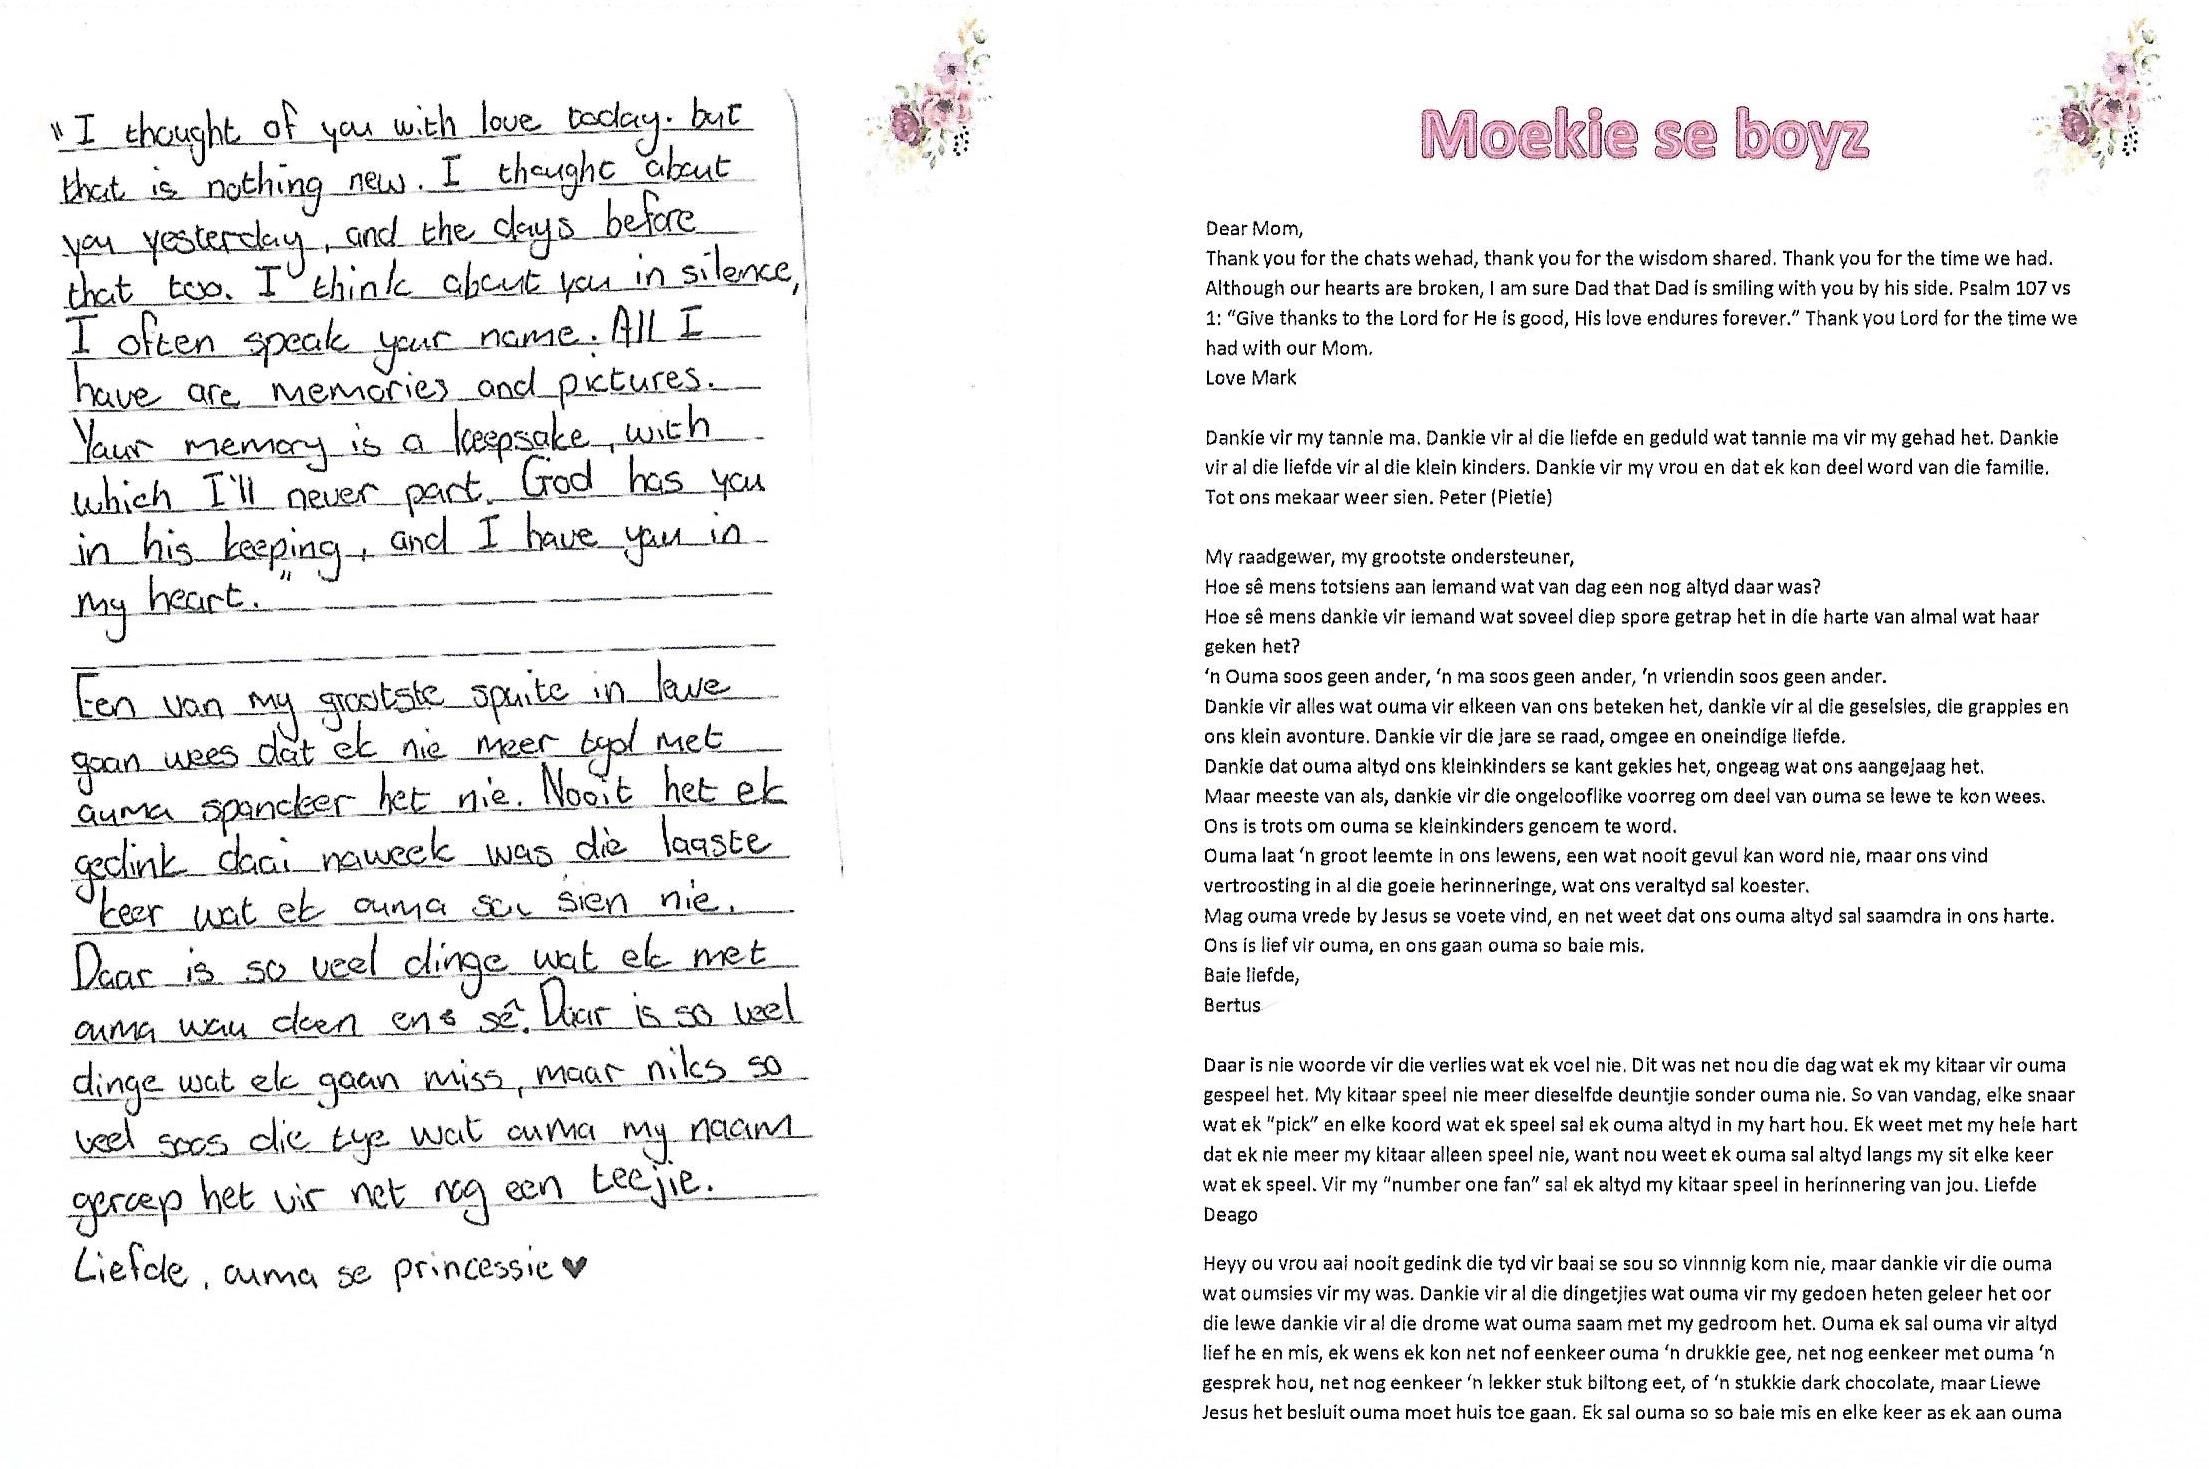 "I thought of you with love today. but
that is nothing new. I thought about
you yesterday, and the days before
that too. I think about you in silence,
I often speak your name. All I
have are memories and pictures.
Your memory is a keepsake, with
which I'll never part. God has you
in his keeping, and I have you in
my heart."
Een van my grootste spuite in lewe
gaan wees dat ek nie meer tyd met
ouma spandeer het nie. Nooit het ek
gedink daai naweek was die laaste
keer wat ek ouma sou sien nie.
Daar is so veel dinge wat ek met
ouma wou doen en sê. Daar is so veel
dinge wat ek gaan miss, maar niks so
veel soos die tye wat ouma my naam
geroep het vir net nog een teejie.
Liefde, ouma se princessie ♥
Moekie se boyz
Dear Mom,
Thank you for the chats wehad, thank you for the wisdom shared. Thank you for the time we had.
Although our hearts are broken, I am sure Dad that Dad is smiling with you by his side. Psalm 107 vs
1: "Give thanks to the Lord for He is good, His love endures forever." Thank you Lord for the time we
had with our Mom.
Love Mark
Dankie vir my tannie ma. Dankie vir al die liefde en geduld wat tannie ma vir my gehad het. Dankie
vir al die liefde vir al die klein kinders. Dankie vir my vrou en dat ek kon deel word van die familie.
Tot ons mekaar weer sien. Peter (Pietie)
My raadgewer, my grootste ondersteuner,
Hoe sê mens totsiens aan iemand wat van dag een nog altyd daar was?
Hoe sê mens dankie vir iemand wat soveel diep spore getrap het in die harte van almal wat haar
geken het?
'n Ouma soos geen ander, 'n ma soos geen ander, 'n vriendin soos geen ander.
Dankie vir alles wat ouma vir elkeen van ons beteken het, dankie vir al die geselsies, die grappies en
ons klein avonture. Dankie vir die jare se raad, omgee en oneindige liefde.
Dankie dat ouma altyd ons kleinkinders se kant gekies het, ongeag wat ons aangejaag het.
Maar meeste van als, dankie vir die ongelooflike voorreg om deel van ouma se lewe te kon wees.
Ons is trots om ouma se kleinkinders genoem te word.
Ouma laat 'n groot leemte in ons lewens, een wat nooit gevul kan word nie, maar ons vind
vertroosting in al die goeie herinneringe, wat ons veraltyd sal koester.
Mag ouma vrede by Jesus se voete vind, en net weet dat ons ouma altyd sal saamdra in ons harte.
Ons is lief vir ouma, en ons gaan ouma so baie mis.
Baie liefde,
Bertus
Daar is nie woorde vir die verlies wat ek voel nie. Dit was net nou die dag wat ek my kitaar vir ouma
gespeel het. My kitaar speel nie meer dieselfde deuntjie sonder ouma nie. So van vandag, elke snaar
wat ek "pick" en elke koord wat ek speel sal ek ouma altyd in my hart hou. Ek weet met my hele hart
dat ek nie meer my kitaar alleen speel nie, want nou weet ek ouma sal altyd langs my sit elke keer
wat ek speel. Vir my "number one fan" sal ek altyd my kitaar speel in herinnering van jou. Liefde
Deago
Heyy ou vrou aai nooit gedink die tyd vir baai se sou so vinnnig kom nie, maar dankie vir die ouma
wat oumsies vir my was. Dankie vir al die dingetjies wat ouma vir my gedoen heten geleer het oor
die lewe dankie vir al die drome wat ouma saam met my gedroom het. Ouma ek sal ouma vir altyd
lief he en mis, ek wens ek kon net nof eenkeer ouma 'n drukkie gee, net nog eenkeer met ouma 'n
gesprek hou, net nog eenkeer 'n lekker stuk biltong eet, of 'n stukkie dark chocolate, maar Liewe
Jesus het besluit ouma moet huis toe gaan. Ek sal ouma so so baie mis en elke keer as ek aan ouma